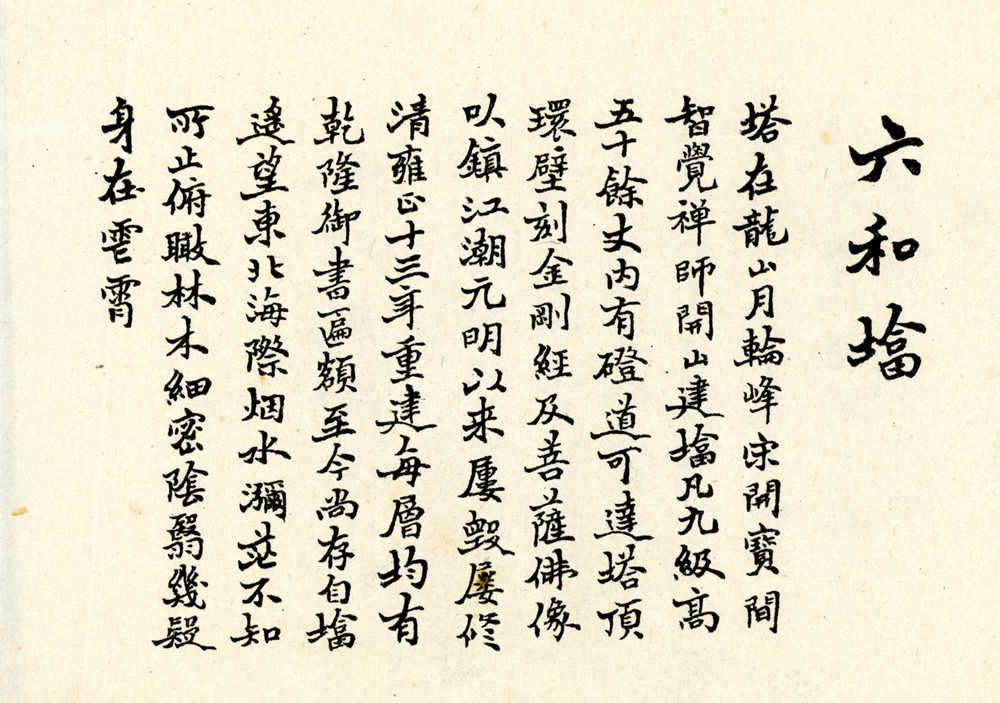 六和塔
塔在龍山月輪峰宋開寶間
智覺禅師開山建塔凡九級高
五十餘丈内有磴道可達塔頂
環壁刻金剛經及菩薩佛像
以鎮江潮元明以来屢毀屢修
清雍正十三年重建每層均有
乾隆御書匾額至今尚存自塔
遙望東北海際烟水瀰茫不知
所止俯瞰林木細密陰翳幾疑
身在雲霄